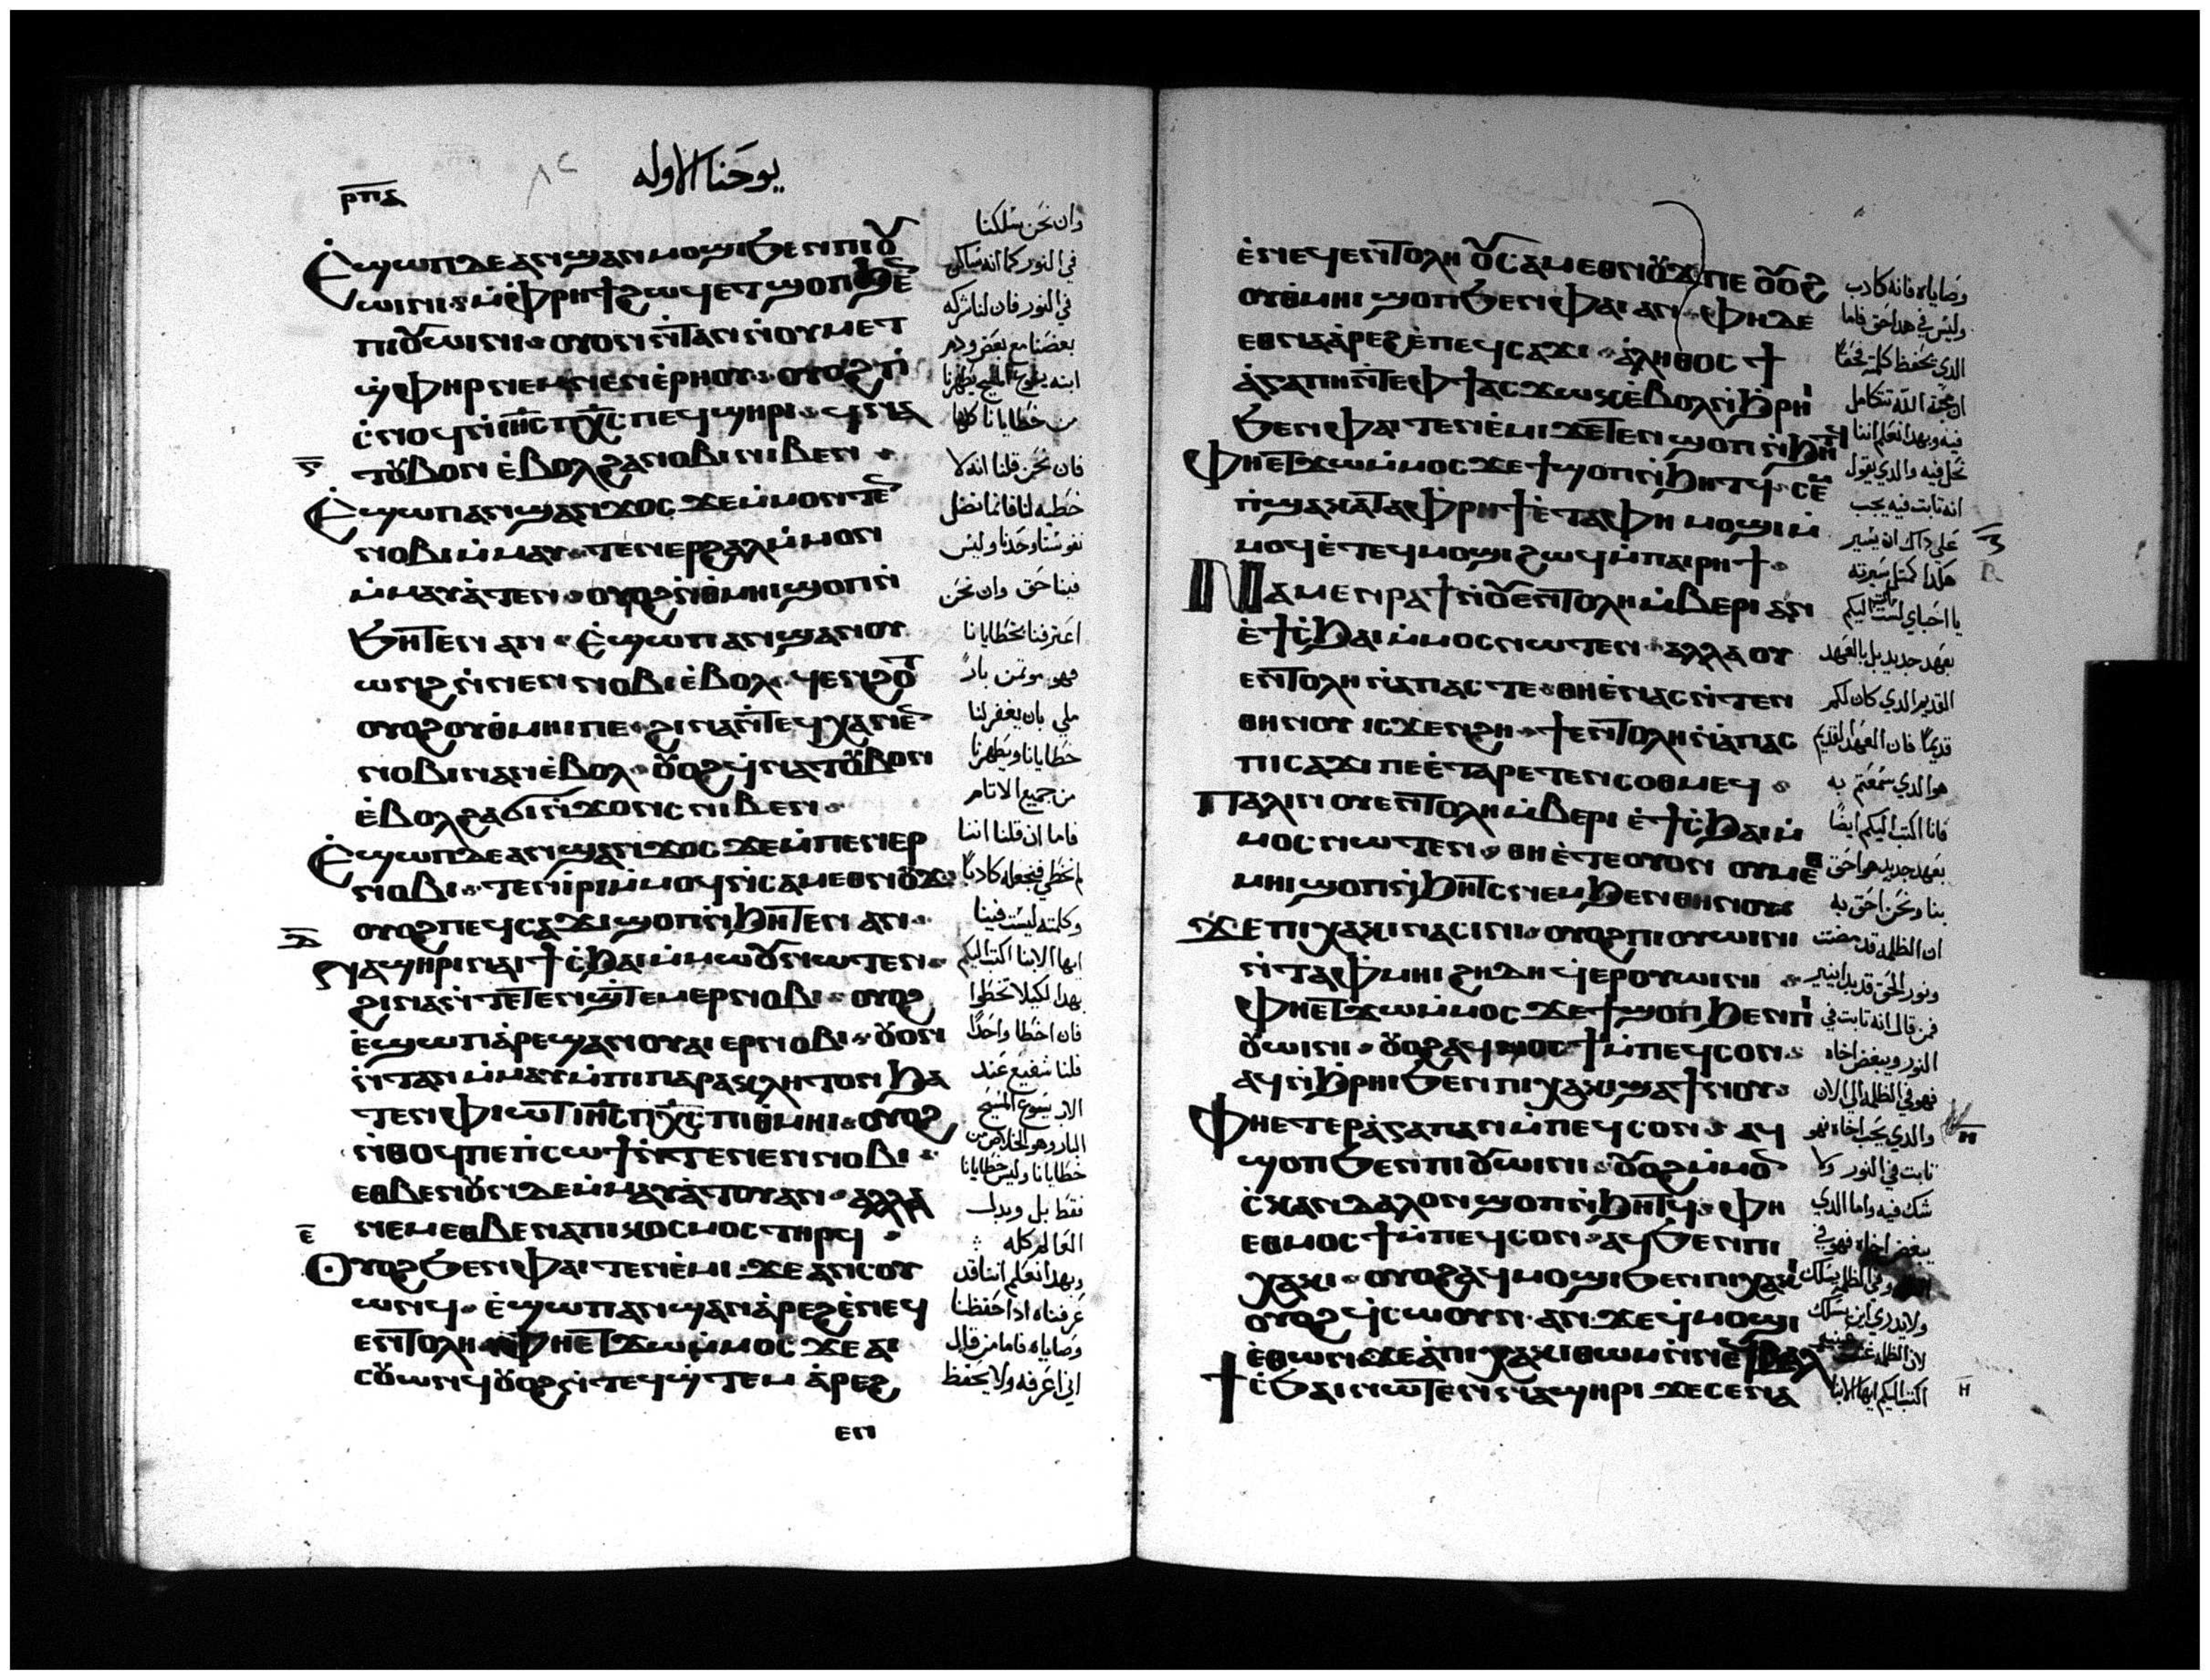 يوحنا الاوله
ⲣⲡⲇ
Ⲉ̀ϣⲱⲡ ⲇⲉ ⲁⲛϣⲁⲛⲙⲟϣⲓ ϧⲉⲛ ⲡⲓⲟⲩ
ⲱⲓⲛⲓ · ⲙ̀ⲫⲣⲏϯ ϩⲱϥ ⲉⲧϣⲟⲡ ϧⲉⲛ
ⲡⲓⲟⲩⲱⲓⲛⲓ · ⲟⲩⲟⲛ ⲛ̀ⲧⲁⲛ ⲛ̀ⲟⲩⲙⲉⲧ
ϣ̀ⲫⲏⲣ ⲛⲉⲙ ⲛⲉⲛⲉ̀ⲣⲏⲟⲩ · ⲟⲩⲟϩ ⲡⲓ
ⲥ̀ⲛⲟϥ ⲛ̀ⲓⲏⲥ ⲡⲭⲥ ⲡⲉϥϣⲏⲣⲓ · ϥⲛⲁ
ⲧⲟⲩⲃⲟⲛ ⲉ̀ⲃⲟⲗ ϩⲁ ⲛⲟⲃⲓ ⲛⲓⲃⲉⲛ ·
Ⲉ̀ϣⲱⲡ ⲁⲛϣⲁⲛϫⲟⲥ ϫⲉ ⲙ̀ⲙⲟⲛⲧⲉⲛ
ⲛⲟⲃⲓ ⲙ̀ⲙⲁⲩ · ⲧⲉⲛⲉⲣϩⲁⲗ ⲙ̀ⲙⲟⲛ
ⲙ̀ⲙⲁⲩⲁ̀ⲧⲉⲛ · ⲟⲩⲟϩ ⲛ̀ⲑⲙⲏⲓ ϣⲟⲡ ⲛ̀
ϧⲏⲧⲉⲛ ⲁⲛ · Ⲉ̀ϣⲱⲡ ⲁⲛϣⲁⲛⲟⲩ
ⲱⲛϩ ⲛ̀ⲛⲉⲛⲛⲟⲃⲓ ⲉ̀ⲃⲟⲗ · ϥⲉⲛϩⲟⲧ
ⲟⲩⲟϩ ⲟⲩⲑ̀ⲙⲏⲓ ⲡⲉ · ϩⲓⲛⲁ ⲛ̀ⲧⲉϥⲭⲁ ⲛⲉⲛ
ⲛⲟⲃⲓ ⲛⲁⲛ ⲉ̀ⲃⲟⲗ · ⲟⲩⲟϩ ϥ̀ⲛⲁⲧⲟⲩⲃⲟⲛ
ⲉ̀ⲃⲟⲗ ϩⲁ ϭⲓⲛ̀ϫⲟⲛⲥ ⲛⲓⲃⲉⲛ ·
Ⲉ̀ϣⲱⲡ ⲇⲉ ⲁⲛϣⲁⲛϫⲟⲥ ϫⲉ ⲙ̀ⲡⲉⲛⲉⲣ
ⲛⲟⲃⲓ · ⲧⲉⲛⲓ̀ⲣⲓ ⲙ̀ⲙⲟϥ ⲛ̀ⲥⲁⲙⲉⲑⲛⲟⲩϫ
ⲟⲩⲟϩ ⲡⲉϥⲥⲁϫⲓ ϣⲟⲡ ⲛ̀ϧⲏⲧⲉⲛ ⲁⲛ ·
ⲇ
ⲛⲁϣⲏⲣⲓ ⲛⲁⲓ ϯⲥ̀ϧⲁⲓ ⲙ̀ⲙⲱⲟⲩ ⲛⲱⲧⲉⲛ ·
ϩⲓⲛⲁ ⲛ̀ⲧⲉⲧⲉⲛϣ̀ⲧⲉⲙⲉⲣⲛⲟⲃⲓ · ⲟⲩⲟϩ
ⲉ̀ϣⲱⲡ ⲁ̀ⲣⲉϣⲁⲛ ⲟⲩⲁⲓ ⲉⲣⲛⲟⲃⲓ · ⲟⲩⲟⲛ
ⲛ̀ⲧⲁⲛ ⲙ̀ⲙⲁⲩ ⲙ̀ⲡⲓⲡⲁⲣⲁⲕⲗⲏⲧⲟⲛ ϧⲁ
ⲧⲉⲛ ⲫⲓⲱⲧ ⲓⲏⲥ ⲡⲭⲥ ⲡⲓⲑ̀ⲙⲏⲓ · ⲟⲩⲟϩ
ⲛ̀ⲑⲟϥ ⲡⲉ ⲡⲓⲥⲱϯ ⲛ̀ⲧⲉ ⲛⲉⲛⲛⲟⲃⲓ ·
ⲉⲑⲃⲉ ⲛⲟⲩⲛ ⲇⲉ ⲙ̀ⲙⲁⲩⲁ̀ⲧⲟⲩ ⲁⲛ · ⲁⲗⲗⲁ
ⲛⲉⲙ ⲉⲑⲃⲉ ⲛⲁ ⲡⲓⲕⲟⲥⲙⲟⲥ ⲧⲏⲣϥ ·
ⲉ
Ⲟⲩⲟϩ ϧⲉⲛ ⲫⲁⲓ ⲧⲉⲛⲉ̀ⲙⲓ · ϫⲉ ⲁⲛⲥⲟⲩ
ⲱⲛϥ · ⲉ̀ϣⲱⲡ ⲁⲛϣⲁⲛⲁ̀ⲣⲉϩ ⲉ̀ⲛⲉϥ
ⲉⲛⲧⲟⲗⲏ · ⲫⲏⲉⲧϫⲱ ⲙ̀ⲙⲟⲥ ϫⲉ ⲁⲓ
ⲥⲟⲩⲱⲛϥ ⲟⲩⲟϩ ⲛ̀ⲧⲉϥϣ̀ⲧⲉⲙ ⲁ̀ⲣⲉϩ
ⲉⲛ
وان نحن سلكنا
في النور كما انه ساكن
في النور فان لنا شركه
بعضنا مع بعض ودم
ابنه يسوع المسيح يطهرنا
من خطايانا كلها
فان نحن قلنا انه لا
خطيه لنا فانما نضل
نفوسنا وحدنا وليس
فينا حق وان نحن
اعترفنا بخطايانا
فهو موتمن بار
ملي بان يغفر لنا
خطايانا ويطهرنا
من جميع الاثام
فاما ان قلنا اننا
لم نخطي فنجعله كادبا
وكلمته ليست فينا
ايها الابنا اكتب اليكم
بهدا لكيلا تخطوا
فان اخطا واحدا
فلنا شفيع عند
الاب يسوع المسيح
البار وهو الخلاص من
خطايانا وليس خطايانا
فقط بل وبدل
العالم كله
وبهدا نعلم اننا قد
عرفناه ادا حفظنا
وصاياه فاما من قال
اني اعرفه ولا يحفظ
ⲉ̀ⲛⲉϥⲉⲛⲧⲟⲗⲏ ⲟⲩⲥⲁⲙⲉⲑⲛⲟⲩϫ ⲡⲉ ⲟⲩⲟϩ
ⲟⲩⲑⲙⲏⲓ ϣⲟⲡ ϧⲉⲛ ⲫⲁⲓ ⲁⲛ · ⲫⲏ ⲇⲉ
ⲉⲑⲛⲁⲁ̀ⲣⲉϩ ⲉ̀ⲡⲉϥⲥⲁϫⲓ · ⲁ̀ⲗⲏⲑⲟⲥ ϯ
ⲁ̀ⲅⲁⲡⲏ ⲛ̀ⲧⲉ ⲫϯ ⲁⲥϫⲱⲕ ⲉ̀ⲃⲟⲗ ⲛ̀ϧⲣⲏⲓ
ϧⲉⲛ ⲫⲁⲓ ⲧⲉⲛⲉ̀ⲙⲓ ϫⲉ ⲧⲉⲛϣⲟⲡ ⲛ̀ϧⲏⲧϥ
Ⲫⲏⲉⲧϫⲱ ⲙ̀ⲙⲟⲥ ϫⲉ ϯϣⲟⲡ ⲛ̀ϧⲏⲧϥ · ⲥⲉⲙ
ⲡ̀ϣⲁ ⲕⲁⲧⲁ ⲫⲣⲏϯ ⲉ̀ⲧⲁ ⲫⲏ ⲙⲟϣⲓ ⲙ̀
ⲙⲟϥ ⲉ̀ⲧⲉϥⲙⲟϣⲓ ϩⲱϥ ⲙ̀ⲡⲁⲓⲣⲏϯ ·
Ⲛⲁⲙⲉⲛⲣⲁϯ ⲛ̀ⲟⲩⲉⲛⲧⲟⲗⲏ ⲙ̀ⲃⲉⲣⲓ ⲁⲛ
ⲉ̀ϯⲥ̀ϧⲁⲓ ⲙ̀ⲙⲟⲥ ⲛⲱⲧⲉⲛ · ⲁⲗⲗⲁ ⲟⲩ
ⲉⲛⲧⲟⲗⲏ ⲛ̀ⲁⲡⲁⲥ ⲧⲉ · ⲑⲏ ⲉ̀ⲛⲁⲥⲛ̀ⲧⲉⲛ
ⲑⲏⲛⲟⲩ ⲓⲥϫⲉⲛ ϩⲏ · ϯⲉⲛⲧⲟⲗⲏ ⲛ̀ⲁⲡⲁⲥ
ⲡⲓⲥⲁϫⲓ ⲡⲉ ⲉ̀ⲧⲁⲣⲉⲧⲉⲛⲥⲟⲑⲙⲉϥ ·
Ⲡⲁⲗⲓⲛ ⲟⲩⲉⲛⲧⲟⲗⲏ ⲙ̀ⲃⲉⲣⲓ ⲉ̀ϯⲥ̀ϧⲁⲓ ⲙ̀
ⲙⲟⲥ ⲛⲱⲧⲉⲛ · ⲑⲏ ⲉ̀ⲧⲉ ⲟⲩⲟⲛ ⲟⲩⲙⲉⲑ
ⲙⲏⲓ ϣⲟⲡ ⲛ̀ϧⲏⲧⲥ ⲛⲉⲙ ϧⲉⲛ ⲑⲏⲛⲟⲩ
ϫⲉ ⲡⲓⲭⲁⲕⲓ ⲛⲁⲥⲓⲛⲓ · ⲟⲩⲟϩ ⲡⲓⲟⲩⲱⲓⲛⲓ
ⲛ̀ⲧⲁⲫⲙⲏⲓ ϩⲏⲇⲏ ϥ̀ⲉⲣⲟⲩⲱⲓⲛⲓ ·
Ⲫⲏⲉⲧϫⲱ ⲙ̀ⲙⲟⲥ ϫⲉ ϯϣⲟⲡ ϧⲉⲛ ⲡⲓ
ⲟⲩⲱⲓⲛⲓ · ⲟⲩⲟϩ ⲁϥⲙⲟⲥϯ ⲙ̀ⲡⲉϥⲥⲟⲛ ·
ⲁϥ ⲛ̀ϧⲣⲏⲓ ϧⲉⲛ ⲡⲓⲭⲁⲕⲓ ϣⲁ ϯⲛⲟⲩ ·
Ⲫⲏⲉⲧⲉⲣⲁ̀ⲅⲁⲡⲁⲛ ⲙ̀ⲡⲉϥⲥⲟⲛ · ⲁϥ
ϣⲟⲡ ϧⲉⲛ ⲡⲓⲟⲩⲱⲓⲛⲓ · ⲟⲩⲟϩ ⲙ̀ⲙⲟⲛ
ⲥ̀ⲕⲁⲛⲇⲁⲗⲟⲛ ϣⲟⲡ ⲛ̀ϧⲏⲧϥ · ⲫⲏ
ⲉⲑⲙⲟⲥϯ ⲙ̀ⲡⲉϥⲥⲟⲛ · ⲁϥ ϧⲉⲛ ⲡⲓ
ⲭⲁⲕⲓ · ⲟⲩⲟϩ ⲁϥⲙⲟϣⲓ ϧⲉⲛ ⲡⲓⲭⲁⲕⲓ
ⲟⲩⲟϩ ϥ̀ⲥⲱⲟⲩⲛ ⲁⲛ ϫⲉ ϥ̀ⲙⲟϣⲓ
ⲉ̀ⲑⲱⲛ · ϫⲉ ⲁ̀ ⲡⲓⲭⲁⲕⲓ ⲑⲱⲙ ⲛ̀ⲛⲉϥⲃⲁⲗ
ϯⲥ̀ϧⲁⲓ ⲛⲱⲧⲉⲛ ⲛⲁϣⲏⲣⲓ ϫⲉ ⲥⲉⲛⲁ
وصاياه فانه كادب
وليس في هدا حق فاما
الدي يحفظ كلمته فحقا
ان محبة الله تتكامل
فيه وبهدا نعلم اننا
نحل فيه والدي يقول
انه ثابت فيه يجب
علي داك ان يسير
هكدا كمثل سيرته
يا احباي لست اكتب اليكم
بعهد جديد بل بالعهد
القديم الدي كان لكم
قديما فان العهد القديم
هو الدي سمعتم به
فانا اكتب اليكم ايضا
بعهد جديد هو احق
بنا ونحن احق به
ان الظلمه قد مضت
ونور الحق قد بدا ينير
فمن قال انه ثابت في
النور ويبغض اخاه
فهو في الظلمه الي الان
والدي يحب اخاه فهو
ثابت في النور ولا
شك فيه واما الدي
يبغض اخاه فهو في
وفي الظلمه يسلك
ولا يدري اين يسلك
لان الظلمه
اكتب اليكم ايها الابنا
ⲏ